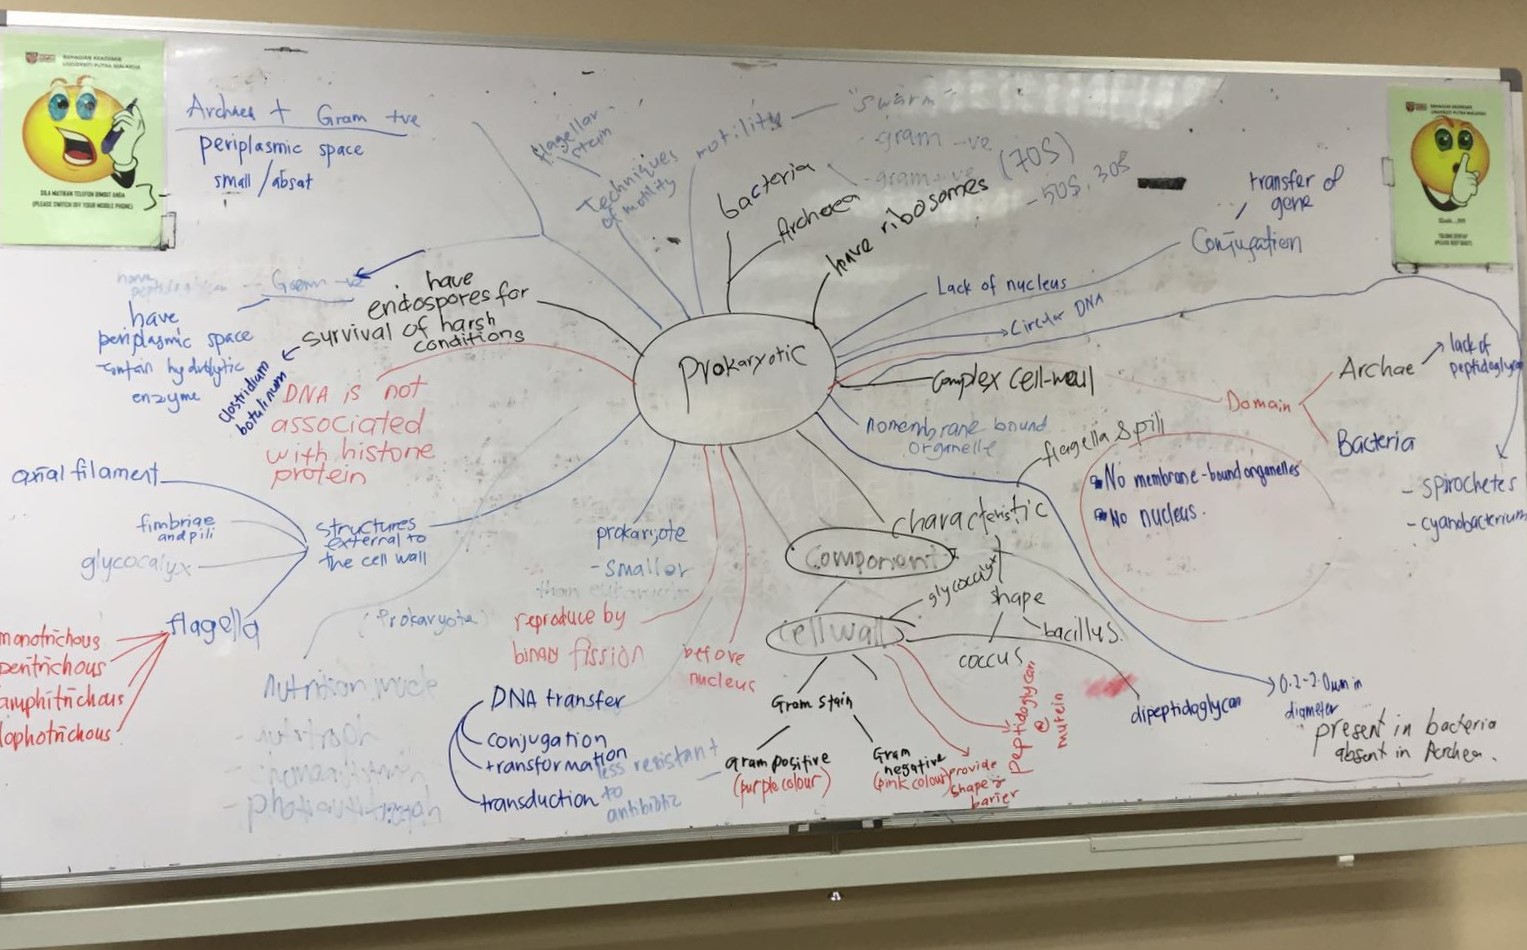 UNIVERSITI PUTRA MALAYSIA
SILA MATIKAN TELEFON BIMBIT ANDA
(PLEASE SWITCH OFF YOUR MOBILE PHONE)
3-
Archaea + Gram +ve
periplasmic space
small /absat
flagellar
stain
Techniques
of motility
motility
"swarm"
-gram -ve
-gram +ve
bacteria
Archaea
have ribosomes (70S)
- 50S, 30S
transfer of
gene
Conjugation
Lack of nucleus
Circular DNA
Prokaryotic
complex cell-wall
nomembrane bound
organelle
Domain
Archae
lack of
peptidoglycan
Bacteria
- spirochetes
- cyanobacterium
No membrane-bound organelles
No nucleus.
have
peptidoglycan
Gram -ve
have
periplasmic space
contain hydrolytic
enzyme
have
endospores for
survival of harsh
conditions
Clostridium
botulinum
DNA is not
associated
with histone
protein
axial filament
fimbriae
and pili
glycocalyx
structures
external to
the cell wall
flagella
monotrichous
peritrichous
amphitrichous
lophotrichous
(Prokaryote)
nutrition mode
prokaryote
- smaller
than eukaryote
reproduce by
binary fission
before
nucleus
DNA transfer
conjugation
transformation
transduction
less resistant
to
antibiotic
flagella & pili
characteristic
Component
glycocalyx
shape
bacillus.
coccus
cell wall
Gram stain
gram positive
(purple colour)
Gram
negative
(pink colour)
provide
shape &
barier
peptidoglycan
@
murein
dipeptidoglycan
0.2-2.0µm in
diameter
present in bacteria
absent in Archea.